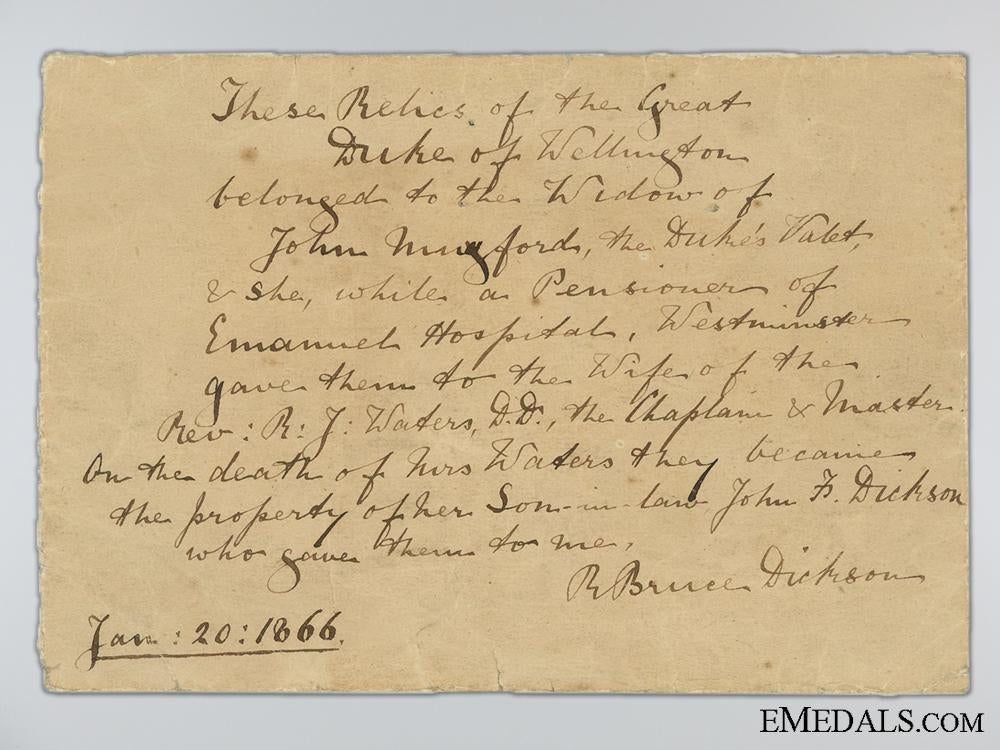 These Relics of the Great
Duke of Wellington
belonged to the Widow of
John Mugford, the Duke's Valet,
& she, while a Pensioner of
Emanuel Hospital, Westminster
gave them to the Wife of the
Rev: R: J: Waters, D.D., the Chaplain & Master.
On the death of Mrs Waters they became
the property of her Son-in-law John F. Dickson
who gave them to me,
R Bruce Dickson
Jan: 20: 1866.
EMEDALS.COM